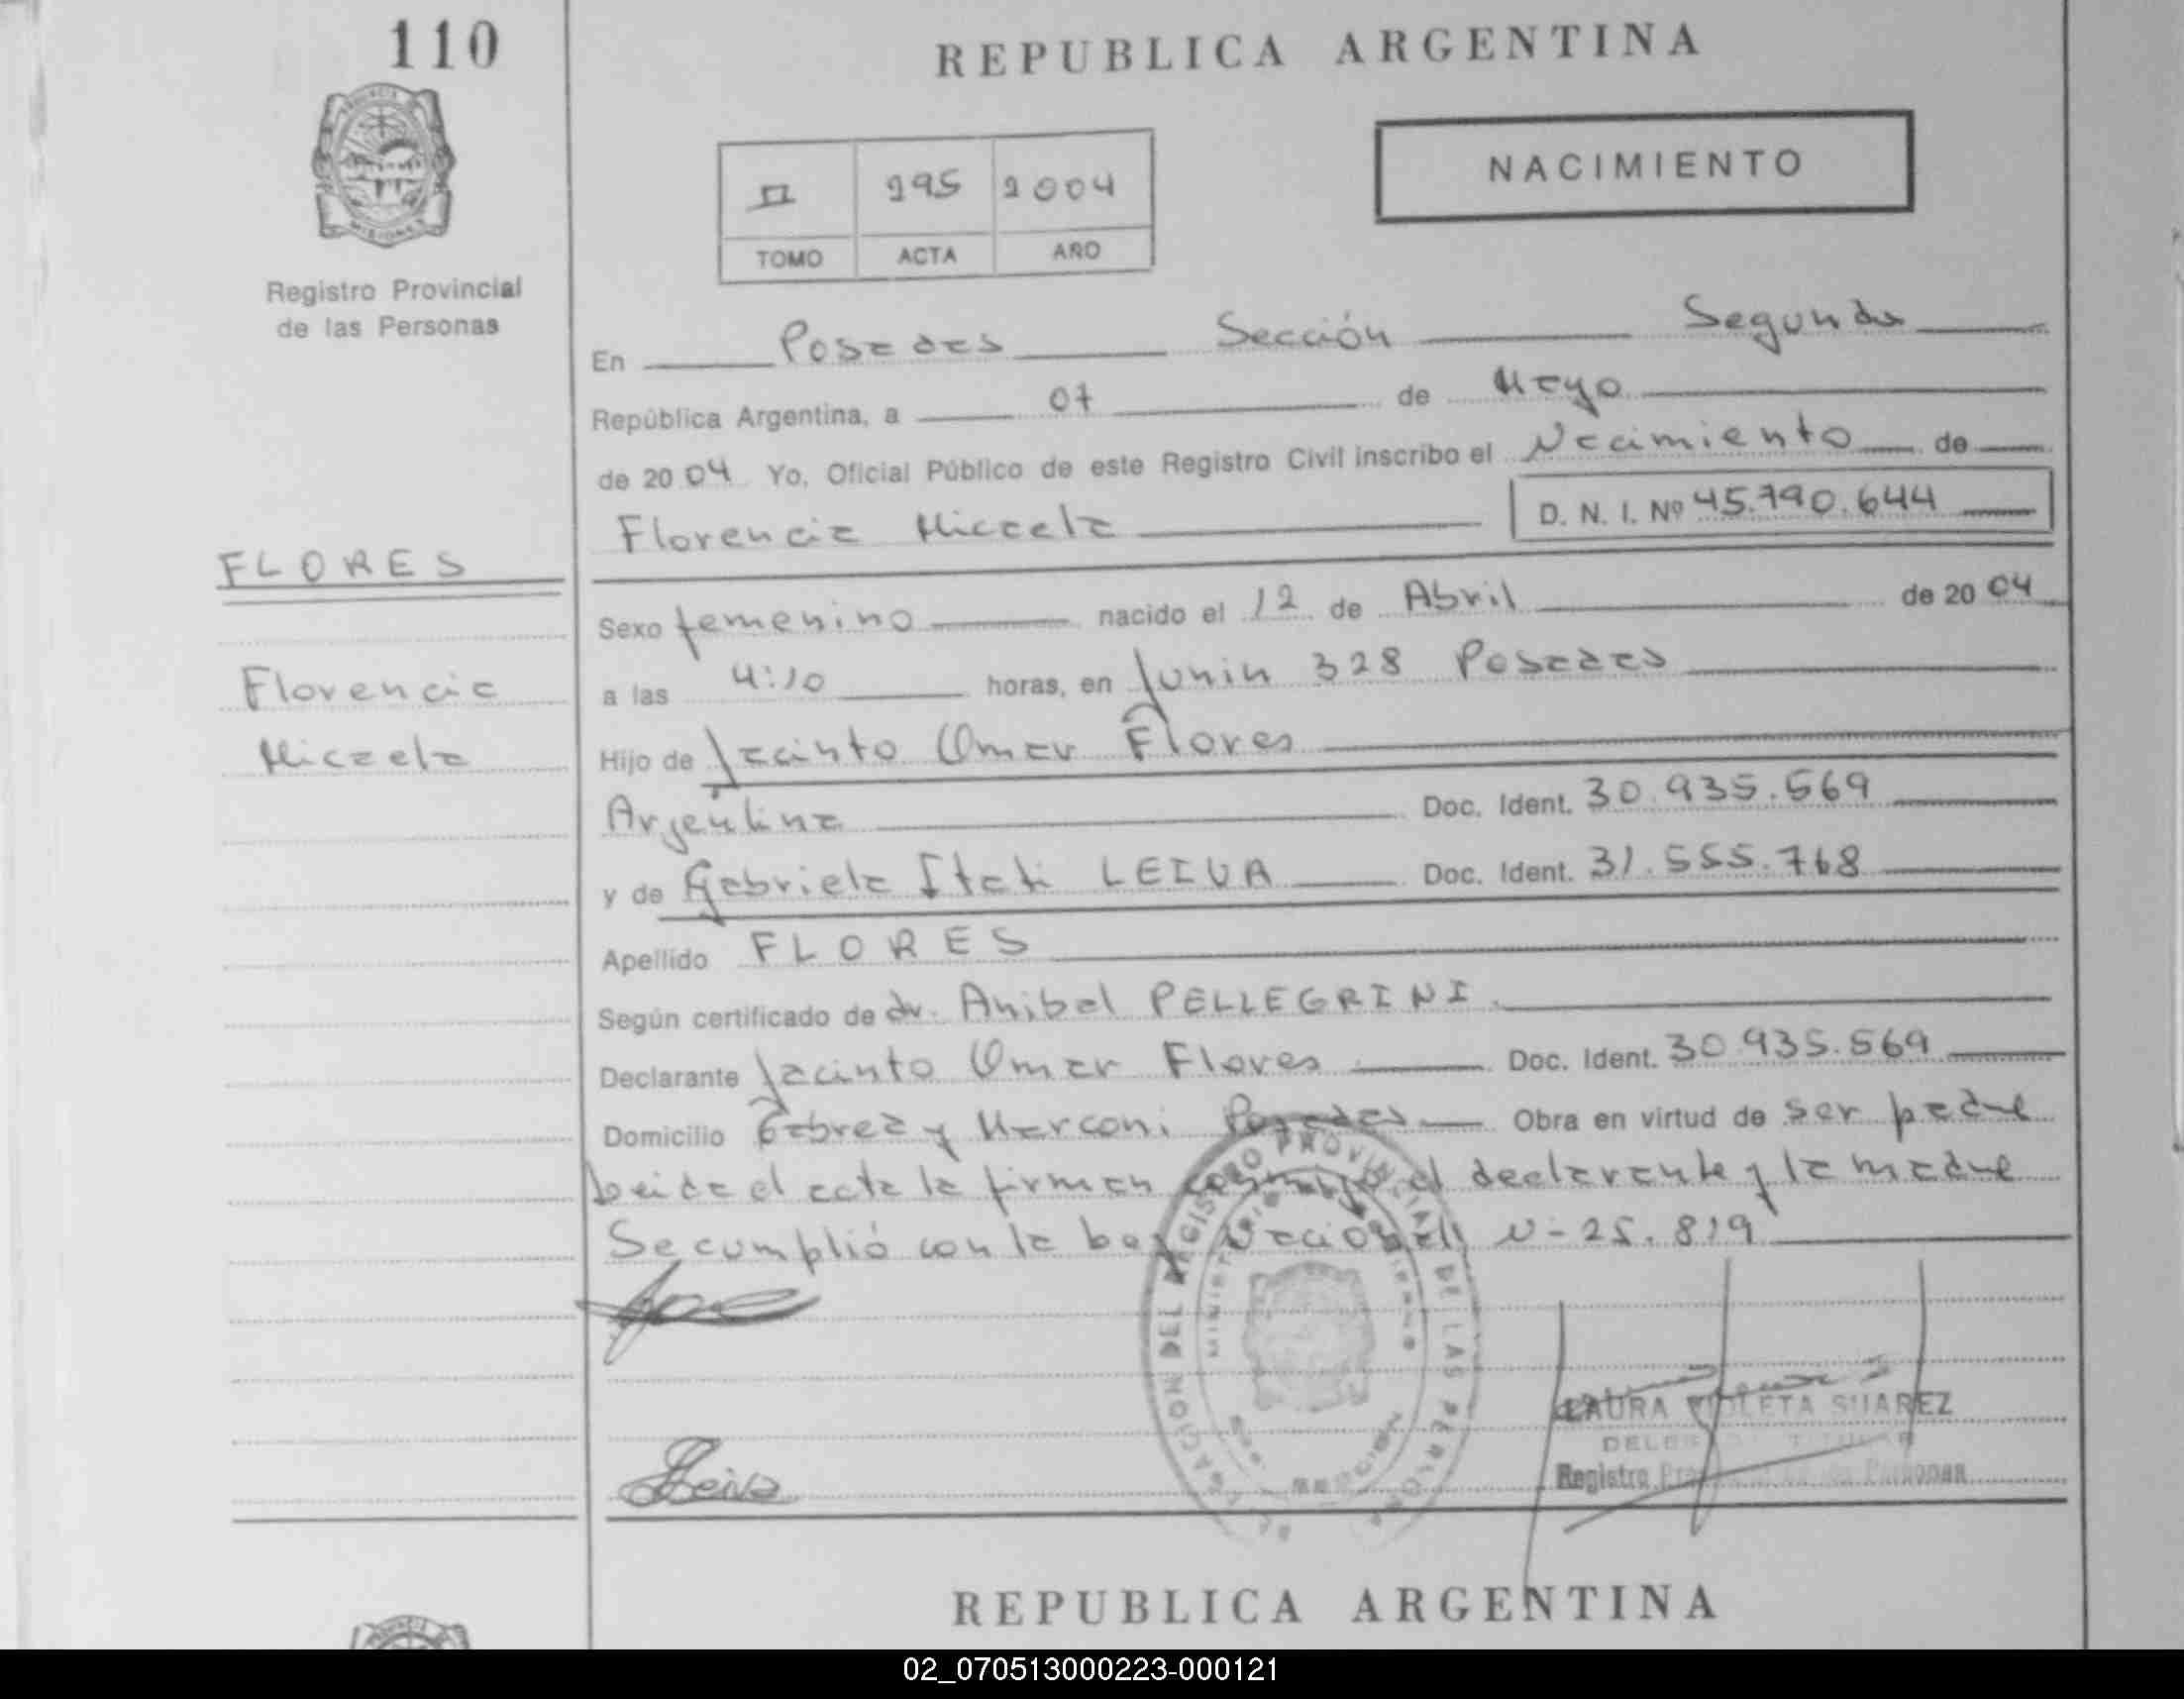 110
REPUBLICA ARGENTINA
NACIMIENTO
II 295 2004
TOMO ACTA AÑO
MISIONES
Registro Provincial
de las Personas
En Posadas Sección Segunda
República Argentina, a 07 de Mayo
de 2004 Yo, Oficial Público de este Registro Civil inscribo el Nacimiento de
Florencia Micaela D. N. I. Nº 45.790.644
FLORES
Sexo femenino nacido el 12 de Abril de 2004
Florencia
a las 4:10 horas, en Junin 328 Posadas
Micaela
Hijo de Jacinto Omar Flores
Argentina Doc. Ident. 30.935.569
y de Gabriela Itati LEIVA Doc. Ident. 31.555.768
Apellido FLORES
Según certificado de dr. Anibal PELLEGRINI.
Declarante Jacinto Omar Flores Doc. Ident. 30.935.569
Domicilio y Marconi Posadas Obra en virtud de ser padre
Leida el acta la firman conmigo el declarante y la madre
Se cumplió con la Ley Nacional N- 25.819
DELEGACION DEL REGISTRO PROVINCIAL DE LAS PERSONAS
Leiva
LAURA VIOLETA SUAREZ
DELEGADA TITULAR
Registro Provincial de las Personas
REPUBLICA ARGENTINA
02_070513000223-000121